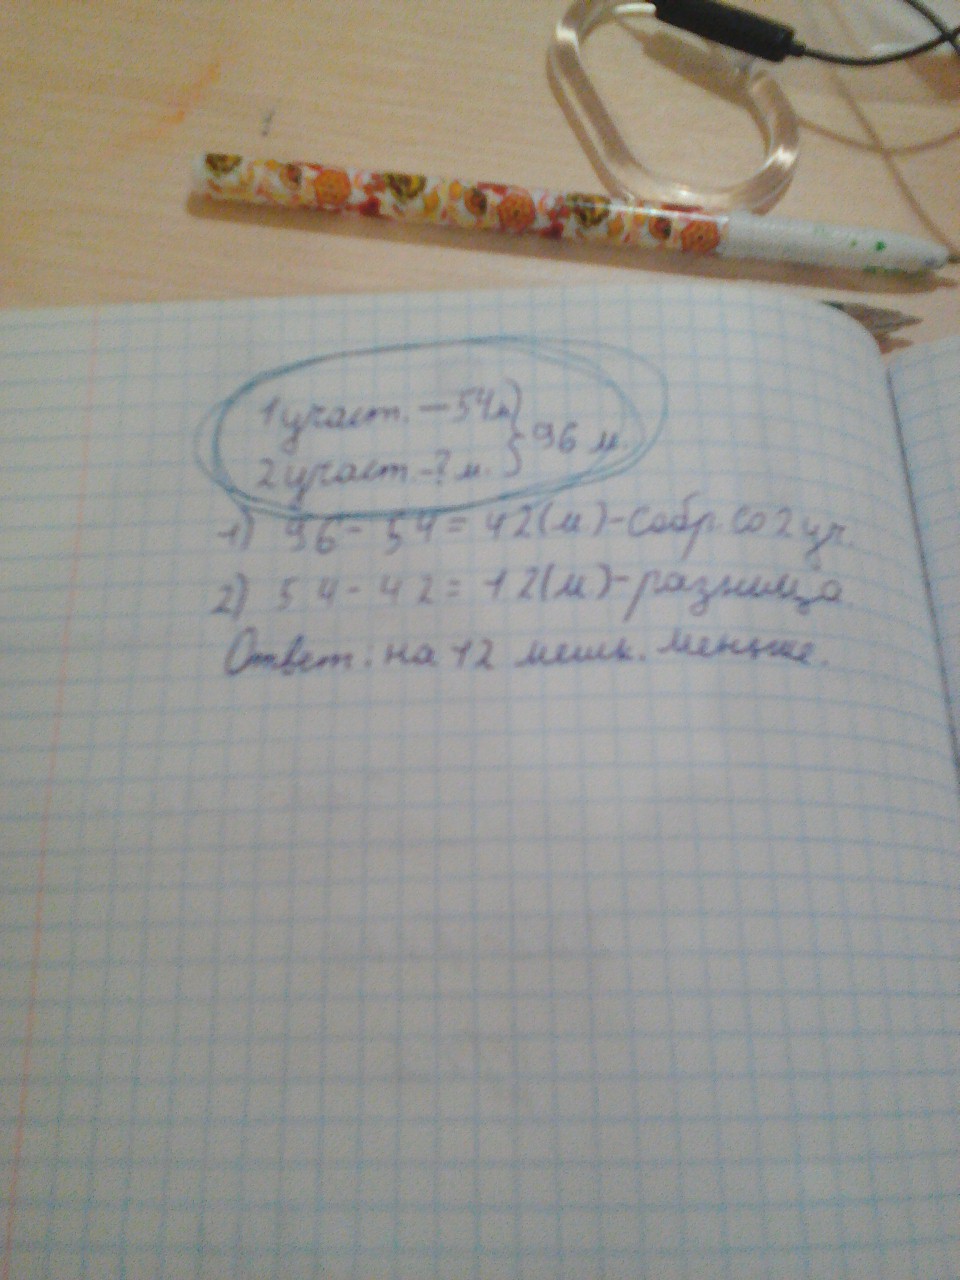 1 участ. — 54 м } 96 м.
2 участ. - ? м.
1) 96 - 54 = 42(м) - собр. со 2 уч.
2) 54 - 42 = 12(м) - разница.
Ответ: на 12 мешк. меньше.